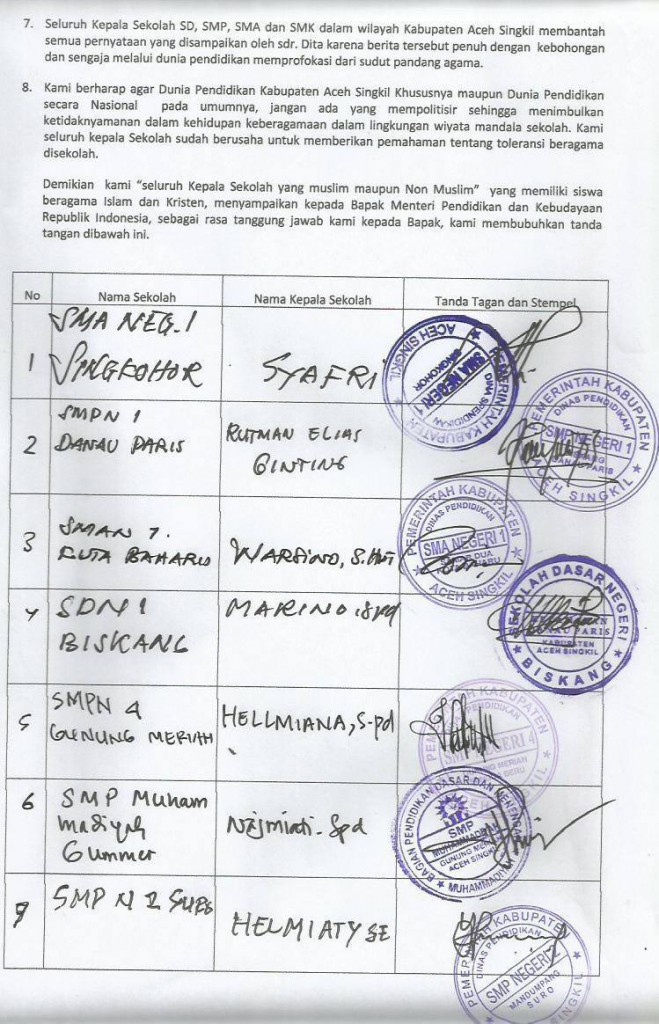 7. Seluruh Kepala Sekolah SD, SMP, SMA dan SMK dalam wilayah Kabupaten Aceh Singkil membantah
semua pernyataan yang disampaikan oleh sdr. Dita karena berita tersebut penuh dengan kebohongan
dan sengaja melalui dunia pendidikan memprofokasi dari sudut pandang agama.
8. Kami berharap agar Dunia Pendidikan Kabupaten Aceh Singkil Khususnya maupun Dunia Pendidikan
secara Nasional pada umumnya, jangan ada yang mempolitisir sehingga menimbulkan
ketidaknyamanan dalam kehidupan keberagamaan dalam lingkungan wiyata mandala sekolah. Kami
seluruh kepala Sekolah sudah berusaha untuk memberikan pemahaman tentang toleransi beragama
disekolah.
Demikian kami “seluruh Kepala Sekolah yang muslim maupun Non Muslim” yang memiliki siswa
beragama Islam dan Kristen, menyampaikan kepada Bapak Menteri Pendidikan dan Kebudayaan
Republik Indonesia, sebagai rasa tanggung jawab kami kepada Bapak, kami membubuhkan tanda
tangan dibawah ini.
No Nama Sekolah Nama Kepala Sekolah Tanda Tagan dan Stempel
SMA NEG. 1
1 SINGKOHOR SYAFRI
PEMERINTAH KABUPATEN
DINAS PENDIDIKAN
SMA NEGERI 1
SINGKOHOR
ACEH SINGKIL
SMPN 1
2 DANAU PARIS RUTMAN ELIAS
GINTING
PEMERINTAH KABUPATEN
DINAS PENDIDIKAN
SMP NEGERI 1
ACEH SINGKIL
3 SMAN 1
KUTA BAHARU WARSINO,
PEMERINTAH KABUPATEN
DINAS PENDIDIKAN
SMA NEGERI 1
ACEH SINGKIL
4 SDN 1 MARINO.Spd
BISKANG
SEKOLAH DASAR NEGERI
KABUPATEN
ACEH SINGKIL
BISKANG
5 SMPN 4 HELLMIANA, S.pd
GUNUNG MERIAH
PEMERINTAH KABUPATEN
DINAS PENDIDIKAN
SMP NEGERI 4
GUNUNG MERIAH
ACEH SINGKIL
6 SMP Muham Najmiati.Spd
madiyah
Gummer
BAGIAN PENDIDIKAN DASAR DAN MENENGAH
SMP
MUHAMMADIYAH
GUNUNG MERIAH
ACEH SINGKIL
MUHAMMADIYAH
7 SMP N 2 HELMIATY SE
PEMERINTAH KABUPATEN
DINAS PENDIDIKAN
SMP NEGERI 2
MANDUMPANG
SURO
ACEH SINGKIL